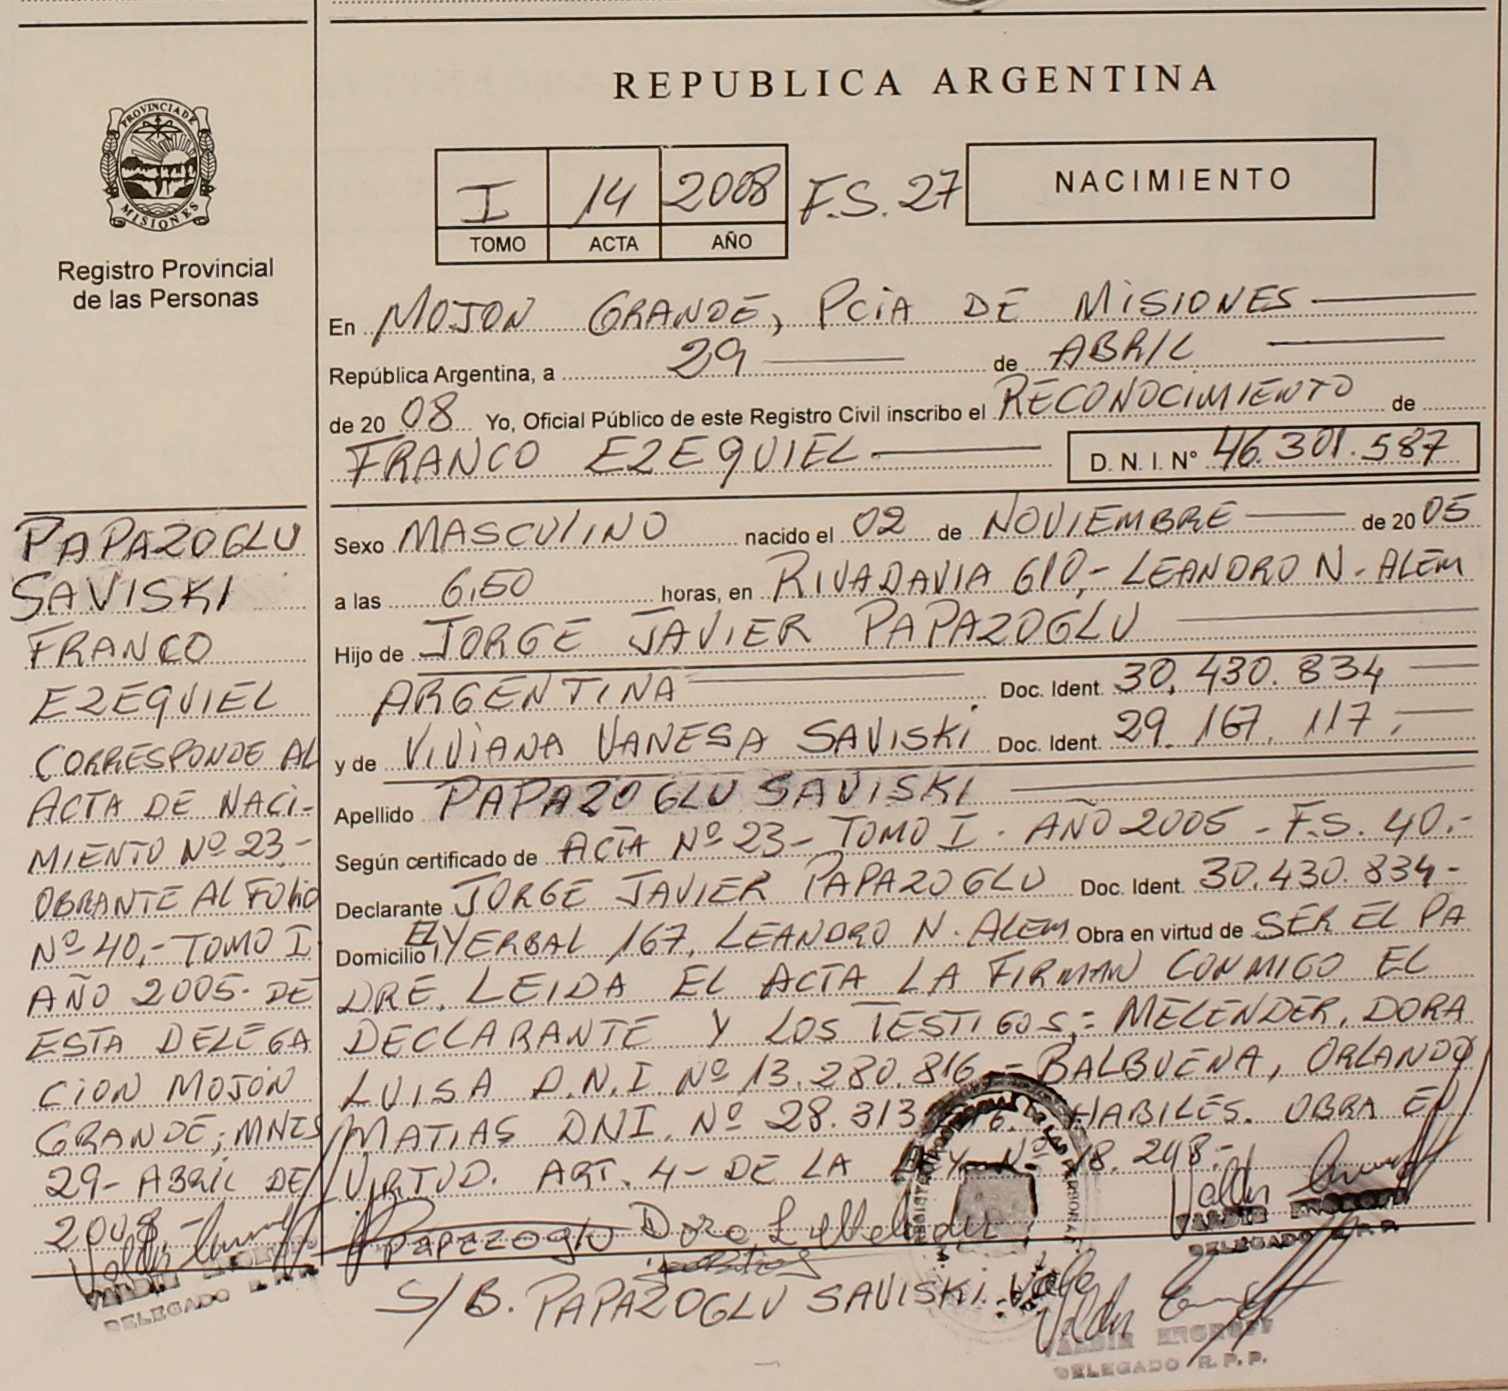 REPUBLICA ARGENTINA
PROVINCIA DE
MISIONES
Registro Provincial
de las Personas
I 14 2008 F.S. 27
TOMO ACTA AÑO
NACIMIENTO
En MOJON GRANDE, PCIA DE MISIONES
República Argentina, a 29 de ABRIL
de 2008 Yo, Oficial Público de este Registro Civil inscribo el RECONOCIMIENTO de
FRANCO EZEQUIEL D.N.I.Nº 46.301.587
Sexo MASCULINO nacido el 02 de NOVIEMBRE de 2005
a las 6,50 horas, en RIVADAVIA 610,- LEANDRO N. ALEM
Hijo de JORGE JAVIER PAPAZOGLU
ARGENTINA Doc. Ident. 30.430.834
y de VIVIANA VANESA SAVISKI. Doc. Ident. 29.167.117.
Apellido PAPAZOGLU SAVISKI
Según certificado de ACTA Nº 23- TOMO I. AÑO 2005 - F.S. 40.-
Declarante JORGE JAVIER PAPAZOGLU Doc. Ident. 30.430.834-
Domicilio EL YERBAL 167, LEANDRO N. ALEM Obra en virtud de SER EL PA
DRE. LEIDA EL ACTA LA FIRMAN CONMIGO EL
DECLARANTE Y LOS TESTIGOS,= MELENDER, DORA
LUISA D.N.I Nº 13.280.816,= BALBUENA, ORLANDO
MATIAS DNI. Nº 28.313 HABILES. OBRA EN
VIRTUD. ART. 4- DE LA LEY Nº 18.248.-
PAPAZOGLU
SAVISKI
FRANCO
EZEQUIEL
CORRESPONDE AL
ACTA DE NACI-
MIENTO Nº 23.-
OBRANTE AL FOLIO
Nº 40,- TOMO I
AÑO 2005. DE
ESTA DELEGA
CION MOJON
GRANDE; MNES
29- ABRIL DE
2008.-
PAPEZOGLU
S/B. PAPAZOGLU SAVISKI. Vale
DELEGADO R.P.P.
DELEGADO R.P.P.
DELEGADO R.P.P.